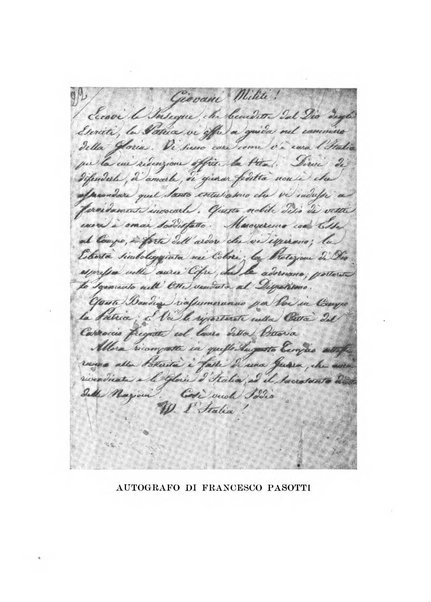 92
Giovani Militi!
Eccovi le Insegne, che benedette dal Dio degli
Eserciti, la Patria vi offre a guida nel cammino
della Gloria. Vi sieno care come v'è cara l'Italia
per la cui redenzione offriste la Vita. Dirvi di
difenderle, di amarle, di giurar fedeltà non è che
secondare quel Santo entusiasmo che vi indusse a
invocarle. Questo nobile Desio de' vostri
cuori è omai soddisfatto. Muoveremo con Esse
al Campo, e forte dell'ardor che vi ispirano; la
Libertà simboleggiata nei Colori; la Protezion di Dio
espressa nelle auree Cifre, che le adornano, porteranno
lo sgomento nell'Oste venduta al Despotismo.
Queste Bandiere rassumeranno per Voi in Campo
la Patria: e Voi le riporterete nella Città del
Carroccio fregiate col lauro della Vittoria.
Allora ricomposte in quest'Augusto Tempio
alla Posterità i fasti di una Guerra, che
rivendicare e le Glorie d'Italia, ed il Sacrosanto
delle Nazioni. Così vuole Iddio
W. l'Italia!
AUTOGRAFO DI FRANCESCO PASOTTI